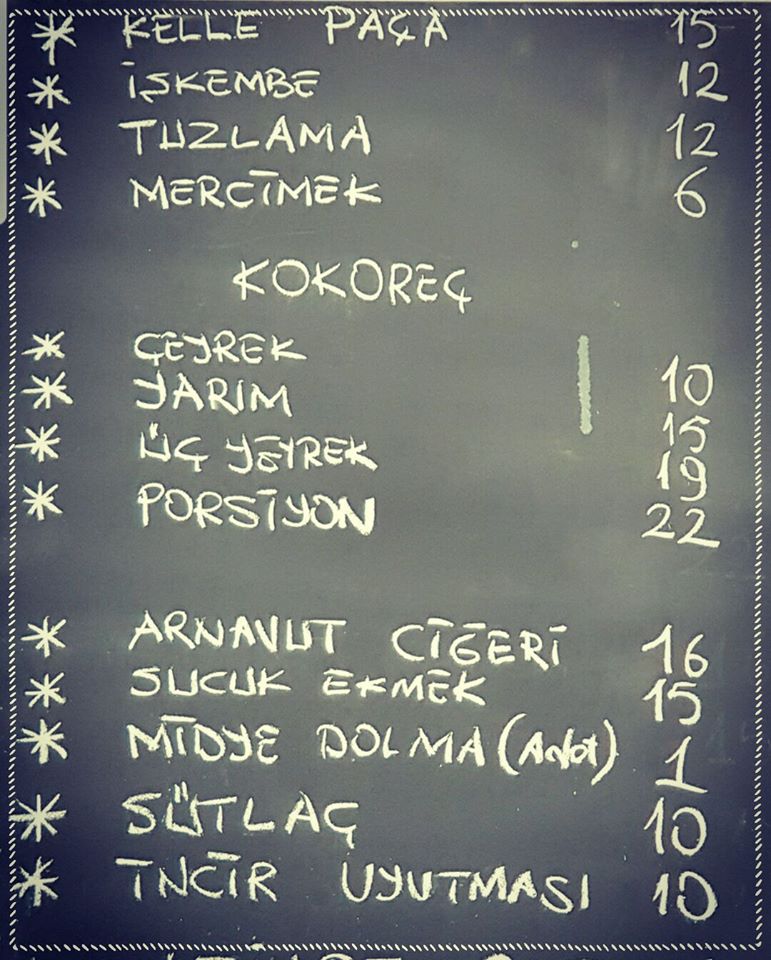 * KELLE PAÇA 15
* İŞKEMBE 12
* TUZLAMA 12
* MERCİMEK 6
KOKOREÇ
* ÇEYREK 10
* YARIM 15
* ÜÇ YEYREK 19
* PORSİYON 22
* ARNAVUT CİĞERİ 16
* SUCUK EKMEK 15
* MİDYE DOLMA (Adet) 1
* SÜTLAÇ 10
* İNCİR UYUTMASI 10